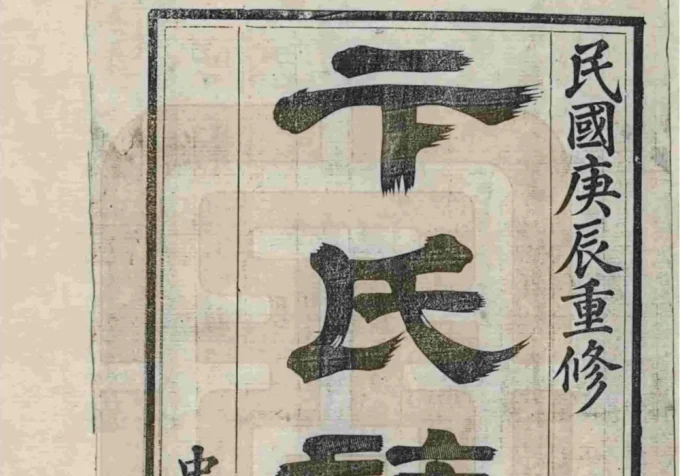 民國庚辰重修
干氏